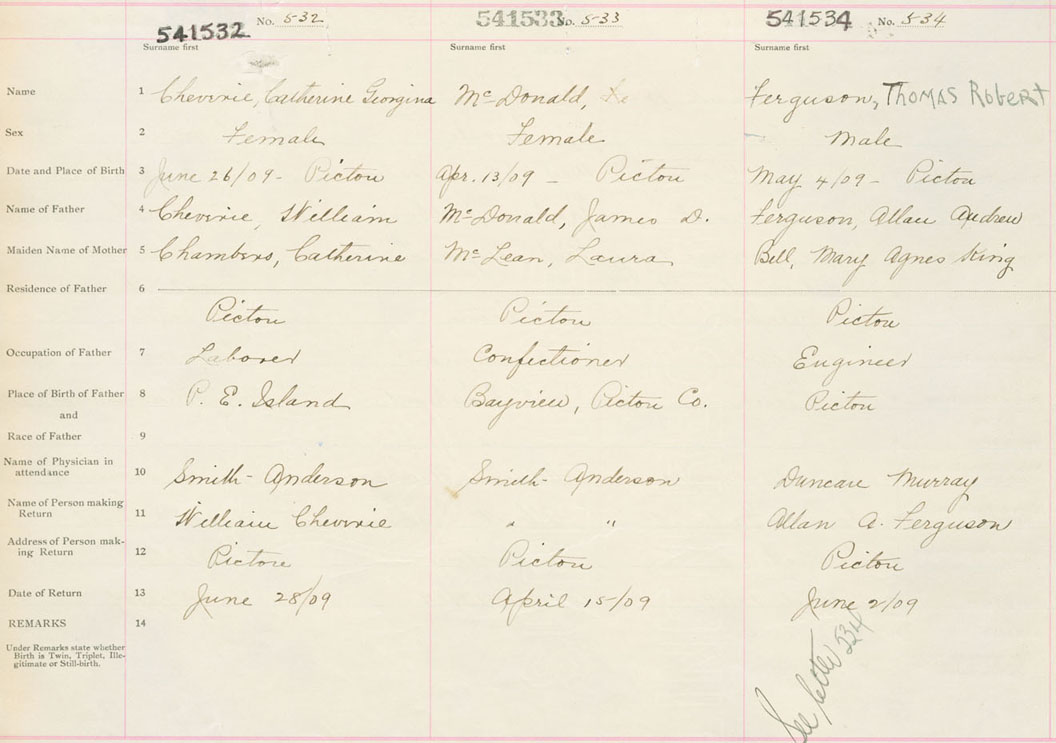 541532 No. 532 541533 No. 533 541534 No. 534
Surname first Surname first Surname first
Name 1 Cheverie, Catherine Georgina McDonald, Ferguson, Thomas Robert
Sex 2 Female Female Male
Date and Place of Birth 3 June 26/09 - Pictou Apr. 13/09 - Pictou May 4/09 - Pictou
Name of Father 4 Cheverie, William McDonald, James D. Ferguson, Allan Andrew
Maiden Name of Mother 5 Chambers, Catherine McLean, Laura Bell, Mary Agnes King
Residence of Father 6
Pictou Pictou Pictou
Occupation of Father 7 Laborer Confectioner Engineer
Place of Birth of Father 8 P. E. Island Bayview, Pictou Co. Pictou
and
Race of Father 9
Name of Physician in
attendance 10 Smith-Anderson Smith-Anderson Duncan Murray
Name of Person making
Return 11 William Cheverie " " Allan A. Ferguson
Address of Person mak-
ing Return 12 Pictou Pictou Pictou
Date of Return 13 June 28/09 April 15/09 June 2/09
REMARKS 14
Under Remarks state whether
Birth is Twin, Triplet, Ille-
gitimate or Still-birth.
See letter 534